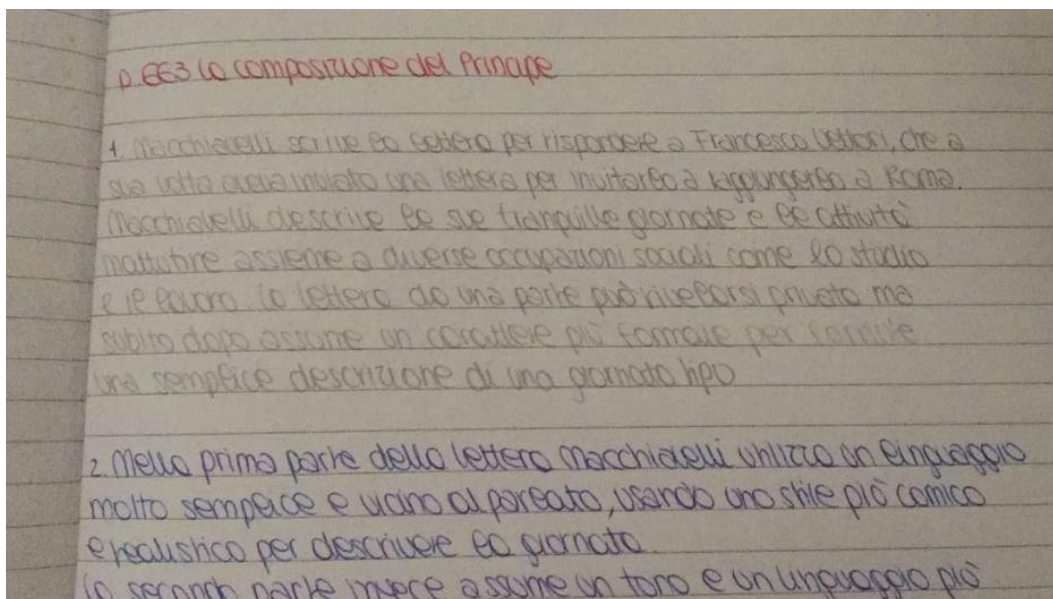 p. 663 la composizione del Principe
1. Macchiavelli scrive la lettera per rispondere a Francesco Vettori, che a
sua volta aveva inviato una lettera per invitarlo a raggiungerlo a Roma.
Macchiavelli descrive le sue tranquille giornate e le attività
mattutine assieme a diverse occupazioni sociali come lo studio
e il lavoro. La lettera da una parte può rivelarsi privata ma
subito dopo assume un carattere più formale per fornire
una semplice descrizione di una giornata tipo
2. Nella prima parte della lettera Macchiavelli utilizza un linguaggio
molto semplice e vicino al parlato, usando uno stile più comico
e realistico per descrivere la giornata.
La seconda parte invece assume un tono e un linguaggio più